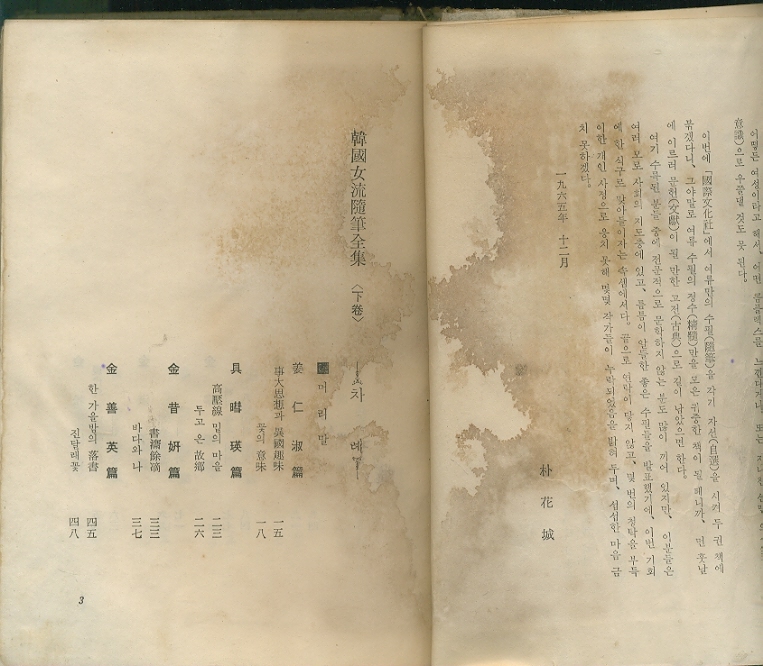 이렇든 여성이라고 해서, 어떤 콤플렉스를 느낀다거나, 또는
意識)으로 우쭐댈 것도 못 된다.
이번에 「國際文化社」에서 여류만의 수필(隨筆)을 각기 자선(自選)을 시켜 두 권 책에
묶겠다니, 그야말로 여류 수필의 정수(精髓)만을 모은 귀중한 책이 될 테니까, 먼 훗날
에 이르러 문헌(文獻)이 될 만한 고전(古典)으로 길이 남았으면 한다.
여기 수록된 분들 중에 전문적으로 문학하지 않는 분도 많이 끼어 있지만, 이분들은
여러 모로 사회의 지도층에 있고, 틈틈이 알뜰한 좋은 수필들을 발표했기에, 이번 기회
에 한 식구로 맞아들이자는 속셈에서다. 끝으로 연락이 닿지 않고, 몇 번의 청탁을 부득
이한 개인 사정으로 응치 못해 몇몇 작가들이 누락되었음을 밝혀 두며, 섭섭한 마음 금
치 못하겠다.
一九六五年 十二月
朴花城
韓國女流隨筆全集 〈下卷〉
차례
머리말
姜仁淑篇
事大思想과 異國趣味 一五
꽃의 意味 一八
具暳瑛篇
高壓線 밑의 마을 二三
두고 온 故鄕 二六
金昔姸篇
書濤餘滴 三三
바다와 나 三七
金善英篇
한 가을밤의 落書 四五
진달래꽃 四八
3